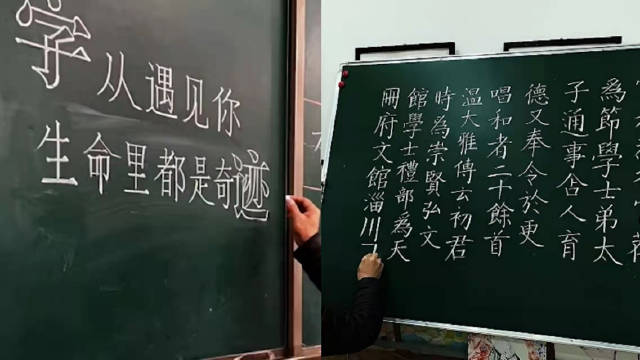 字从遇见你
生命里都是奇迹
為節學士弟太
子通事舍人育
德又奉令於更
唱和者二十餘首
温大雅傳云初君
時為崇賢弘文
館學士禮部為天
冊府文館淄川